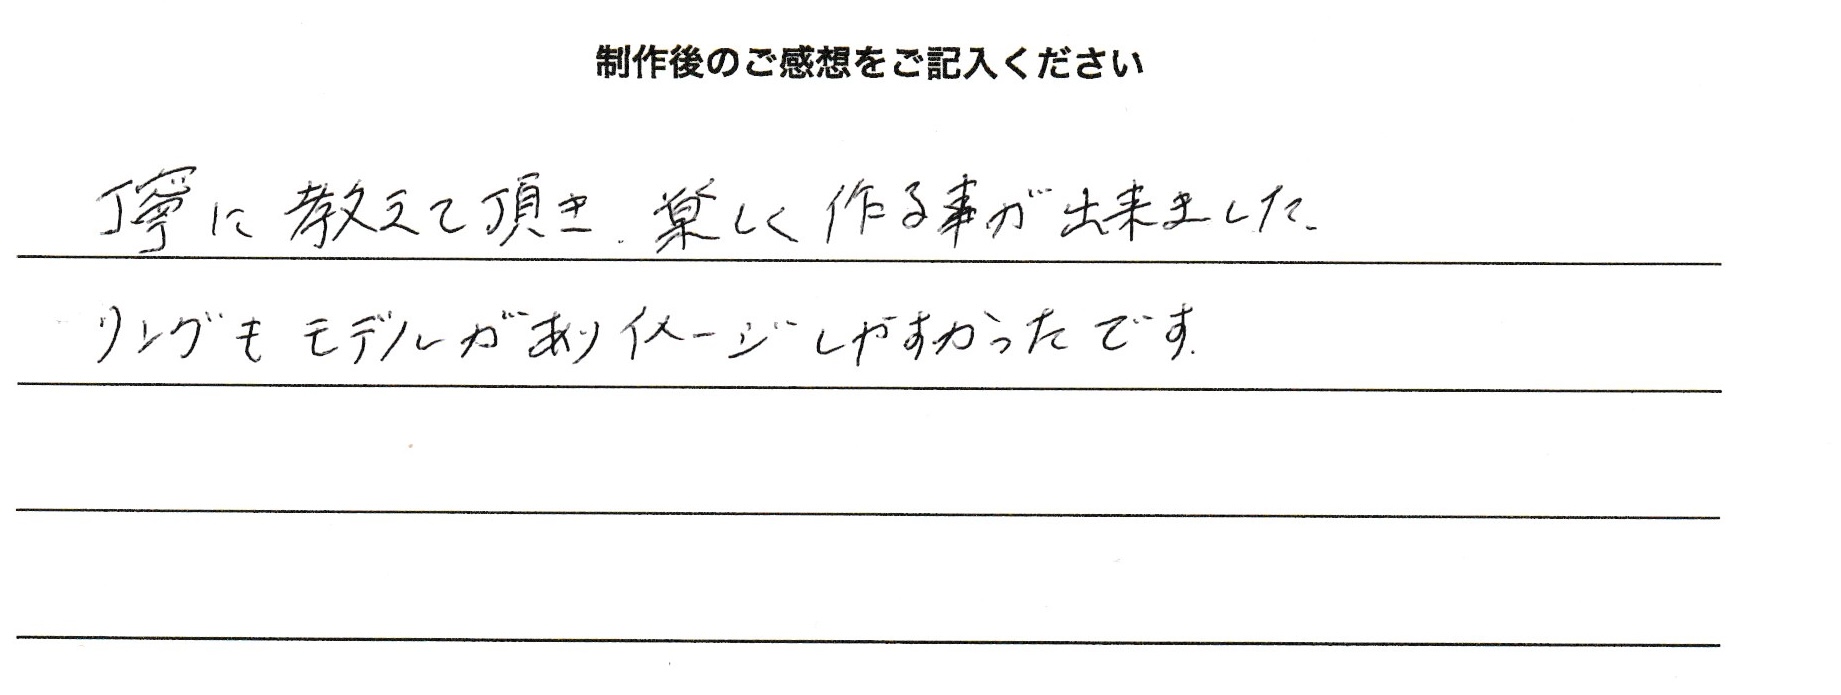 制作後のご感想をご記入ください
丁寧に教えて頂き、楽しく作る事が出来ました。
リングもモデルがありイメージしやすかったです。